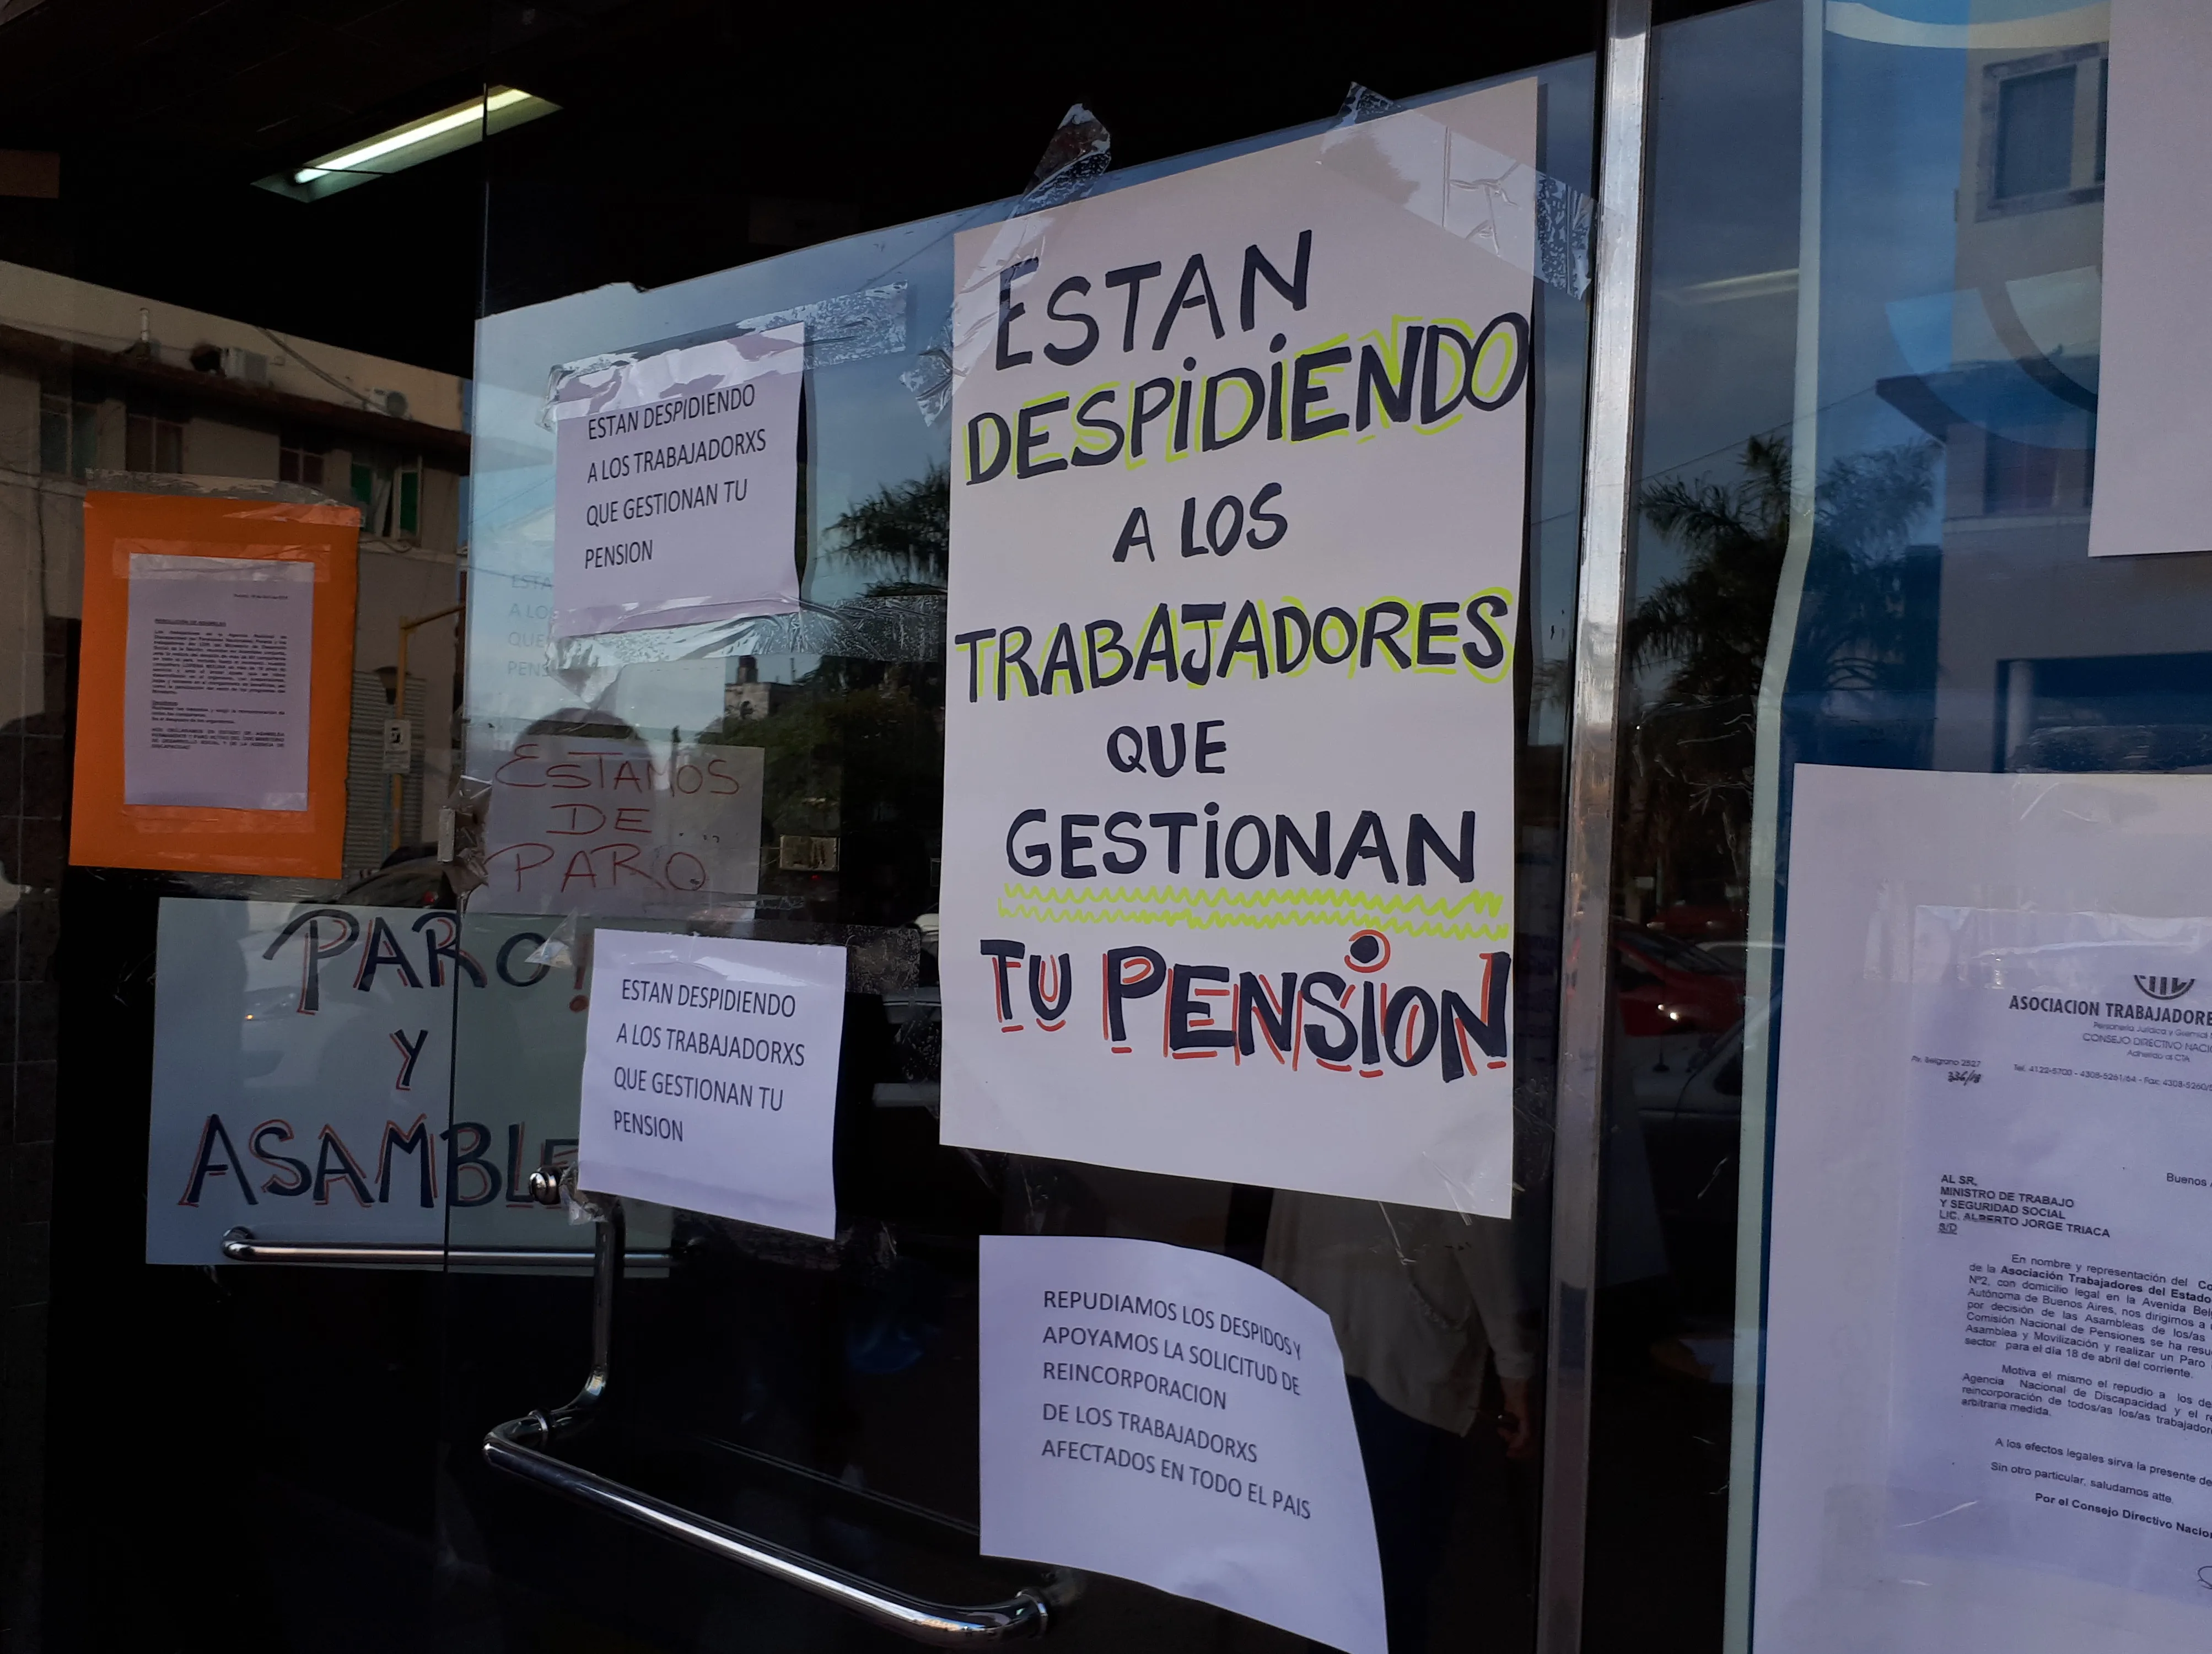 ESTAN DESPIDIENDO
A LOS TRABAJADORXS
QUE GESTIONAN TU
PENSION
ESTAN
DESPiDiENDO
A LOS
TRABAJADORES
QUE
GESTiONAN
TU PENSiON
ESTA
A LOS
QUE
PENS
ESTAMOS
DE
PARO
PARO!
Y
ASAMBLE
ESTAN DESPIDIENDO
A LOS TRABAJADORXS
QUE GESTIONAN TU
PENSION
REPUDIAMOS LOS DESPIDOS Y
APOYAMOS LA SOLICITUD DE
REINCORPORACION
DE LOS TRABAJADORXS
AFECTADOS EN TODO EL PAIS
ASOCIACION TRABAJADORE
Personería Jurídica y Gremial
CONSEJO DIRECTIVO NACIO
Adherido al CTA
Av. Belgrano 2527
Tel. 4122-5700 - 4308-5261/64 - Fax: 4308-5260/
Buenos A
AL SR.
MINISTRO DE TRABAJO
Y SEGURIDAD SOCIAL
LIC. ALBERTO JORGE TRIACA
S/D
En nombre y representación del Co
de la Asociación Trabajadores del Estado
Nº2, con domicilio legal en la Avenida Bel
Autónoma de Buenos Aires, nos dirigimos a
por decisión de las Asambleas de los/as
Comisión Nacional de Pensiones se ha resu
Asamblea y Movilización y realizar un Paro
sector para el día 18 de abril del corriente.
Motiva el mismo el repudio a los de
Agencia Nacional de Discapacidad y el re
reincorporación de todos/as los/as trabajador
arbitraria medida.
A los efectos legales sirva la presente de
Sin otro particular, saludamos atte.
Por el Consejo Directivo Nacio